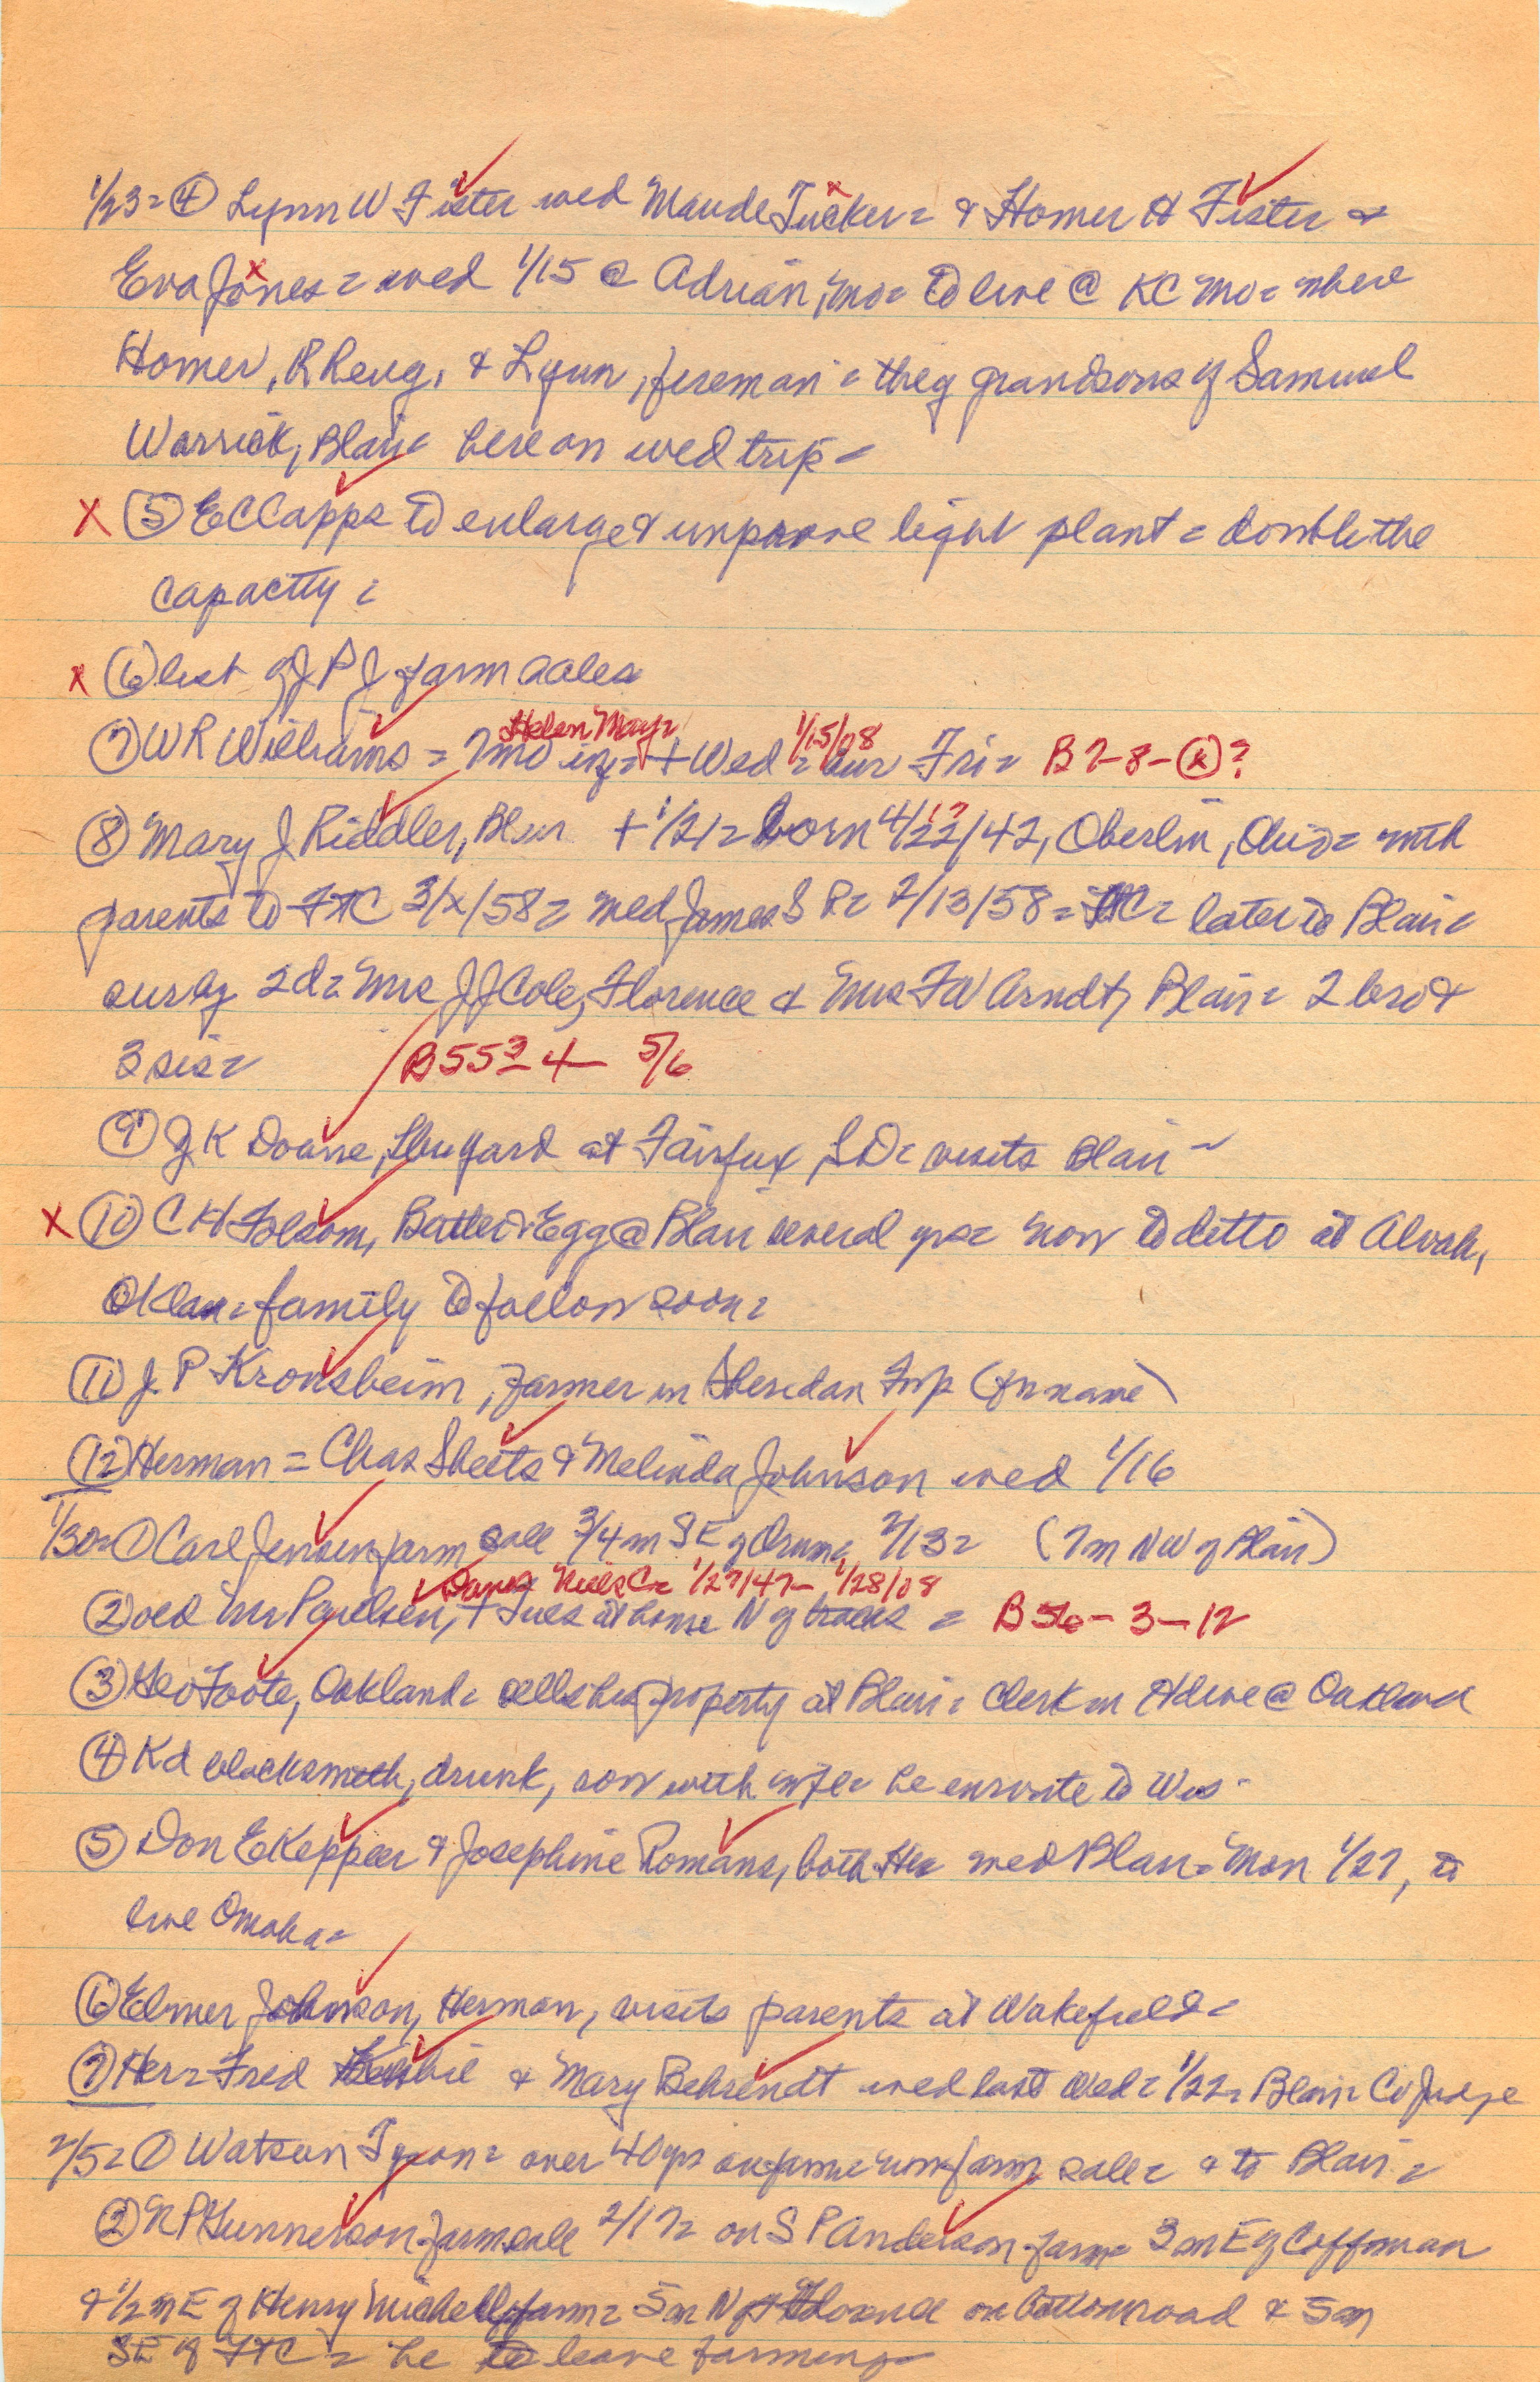 1/23= ④ Lynn W Fister wed Maude Tucker= & Homer H Fister &
Eva Jones= wed 1/15 @ Adrian, Mo= to live @ KC Mo= where
Homer, R R eng, & Lynn, fireman= they grandsons of Samuel
Warrick, Blair= here on wed trip=
X ⑤ E C Capps to enlarge & improve light plant= double the
capacity=
x ⑥ list of J P J farm sales
Helen May= 1/15/08
⑦ W R Williams= 7mo inf= + Wed= bur Fri= B 7-8-Ⓚ?
⑧ Mary J Riddler, Blair + 1/21= born 4/22/42, Oberlin, Ohio= with
parents to FTC 3/x/58= wed James S R= 2/13/58= FTC= later to Blair=
sur by 2d= Mrs J J Cole, Florence & Mrs F W Arndt, Blair= 2 bro &
3 sis= B55= 4— 5/6
⑨ J K Doane, at Fairfax, SD= visits Blair=
X ⑩ C H Folsom, Butter & Egg @ Blair several yrs= now to ditto at Alvah,
Okla= family to follow soon=
⑪ J P Kronsbeim, farmer in Sheridan Twp (fn name)
⑫ Herman= Chas Sheets & Melinda Johnson wed 1/16
1/30= ① Carl Jensen farm sale 3/4 m SE of Orum= 2/13= (7m NW of Blair)
Niels C= 1/27/47— 1/28/08
② old Mr Paulsen, + Tues at home N of tracks= B56-3-12
③ Geo Foote, Oakland= sells his property at Blair= clerk in Hdwe @ Oakland
④ Kd blacksmith, drunk, row with wife= he enroute to Wis-
⑤ Don E Keppler & Josephine Romans, both Her= wed Blair= Mon 1/27, to
live Omaha=
⑥ Elmer Johnson, Herman, visits parents at Wakefield=
⑦ Her= Fred & Mary Behrendt wed last Wed= 1/22= Blair= Co Judge
2/5= ① Watson Tyson= over 40 yrs on farm= now farm sale= & to Blair=
② N P Gunnerson farm sale 2/17= on S P Anderson farm= 3 m E of Coffman
& 1/2 m E of Henry Michell farm= 5 m N of Florence on bottom road & 5m
SE of FTC= he to leave farming=